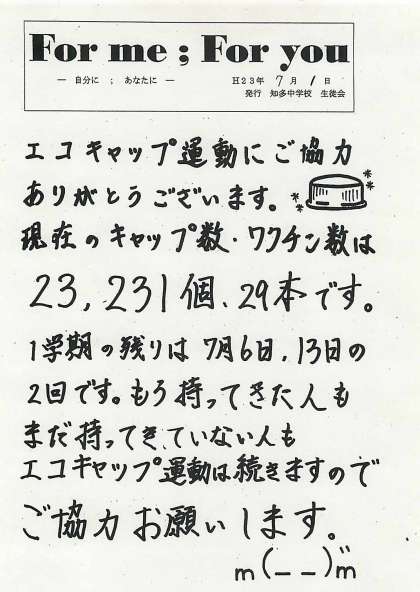 For me ; For you
― 自分に ; あなたに ―
H23年 7月 1日
発行 知多中学校 生徒会
エコキャップ運動にご協力
ありがとうございます。
現在のキャップ数・ワクチン数は
23,231個、29本です。
1学期の残りは 7月6日、13日の
2回です。もう持ってきた人も
まだ持ってきていない人も
エコキャップ運動は続きますので
ご協力お願いします。
m(_ _)m